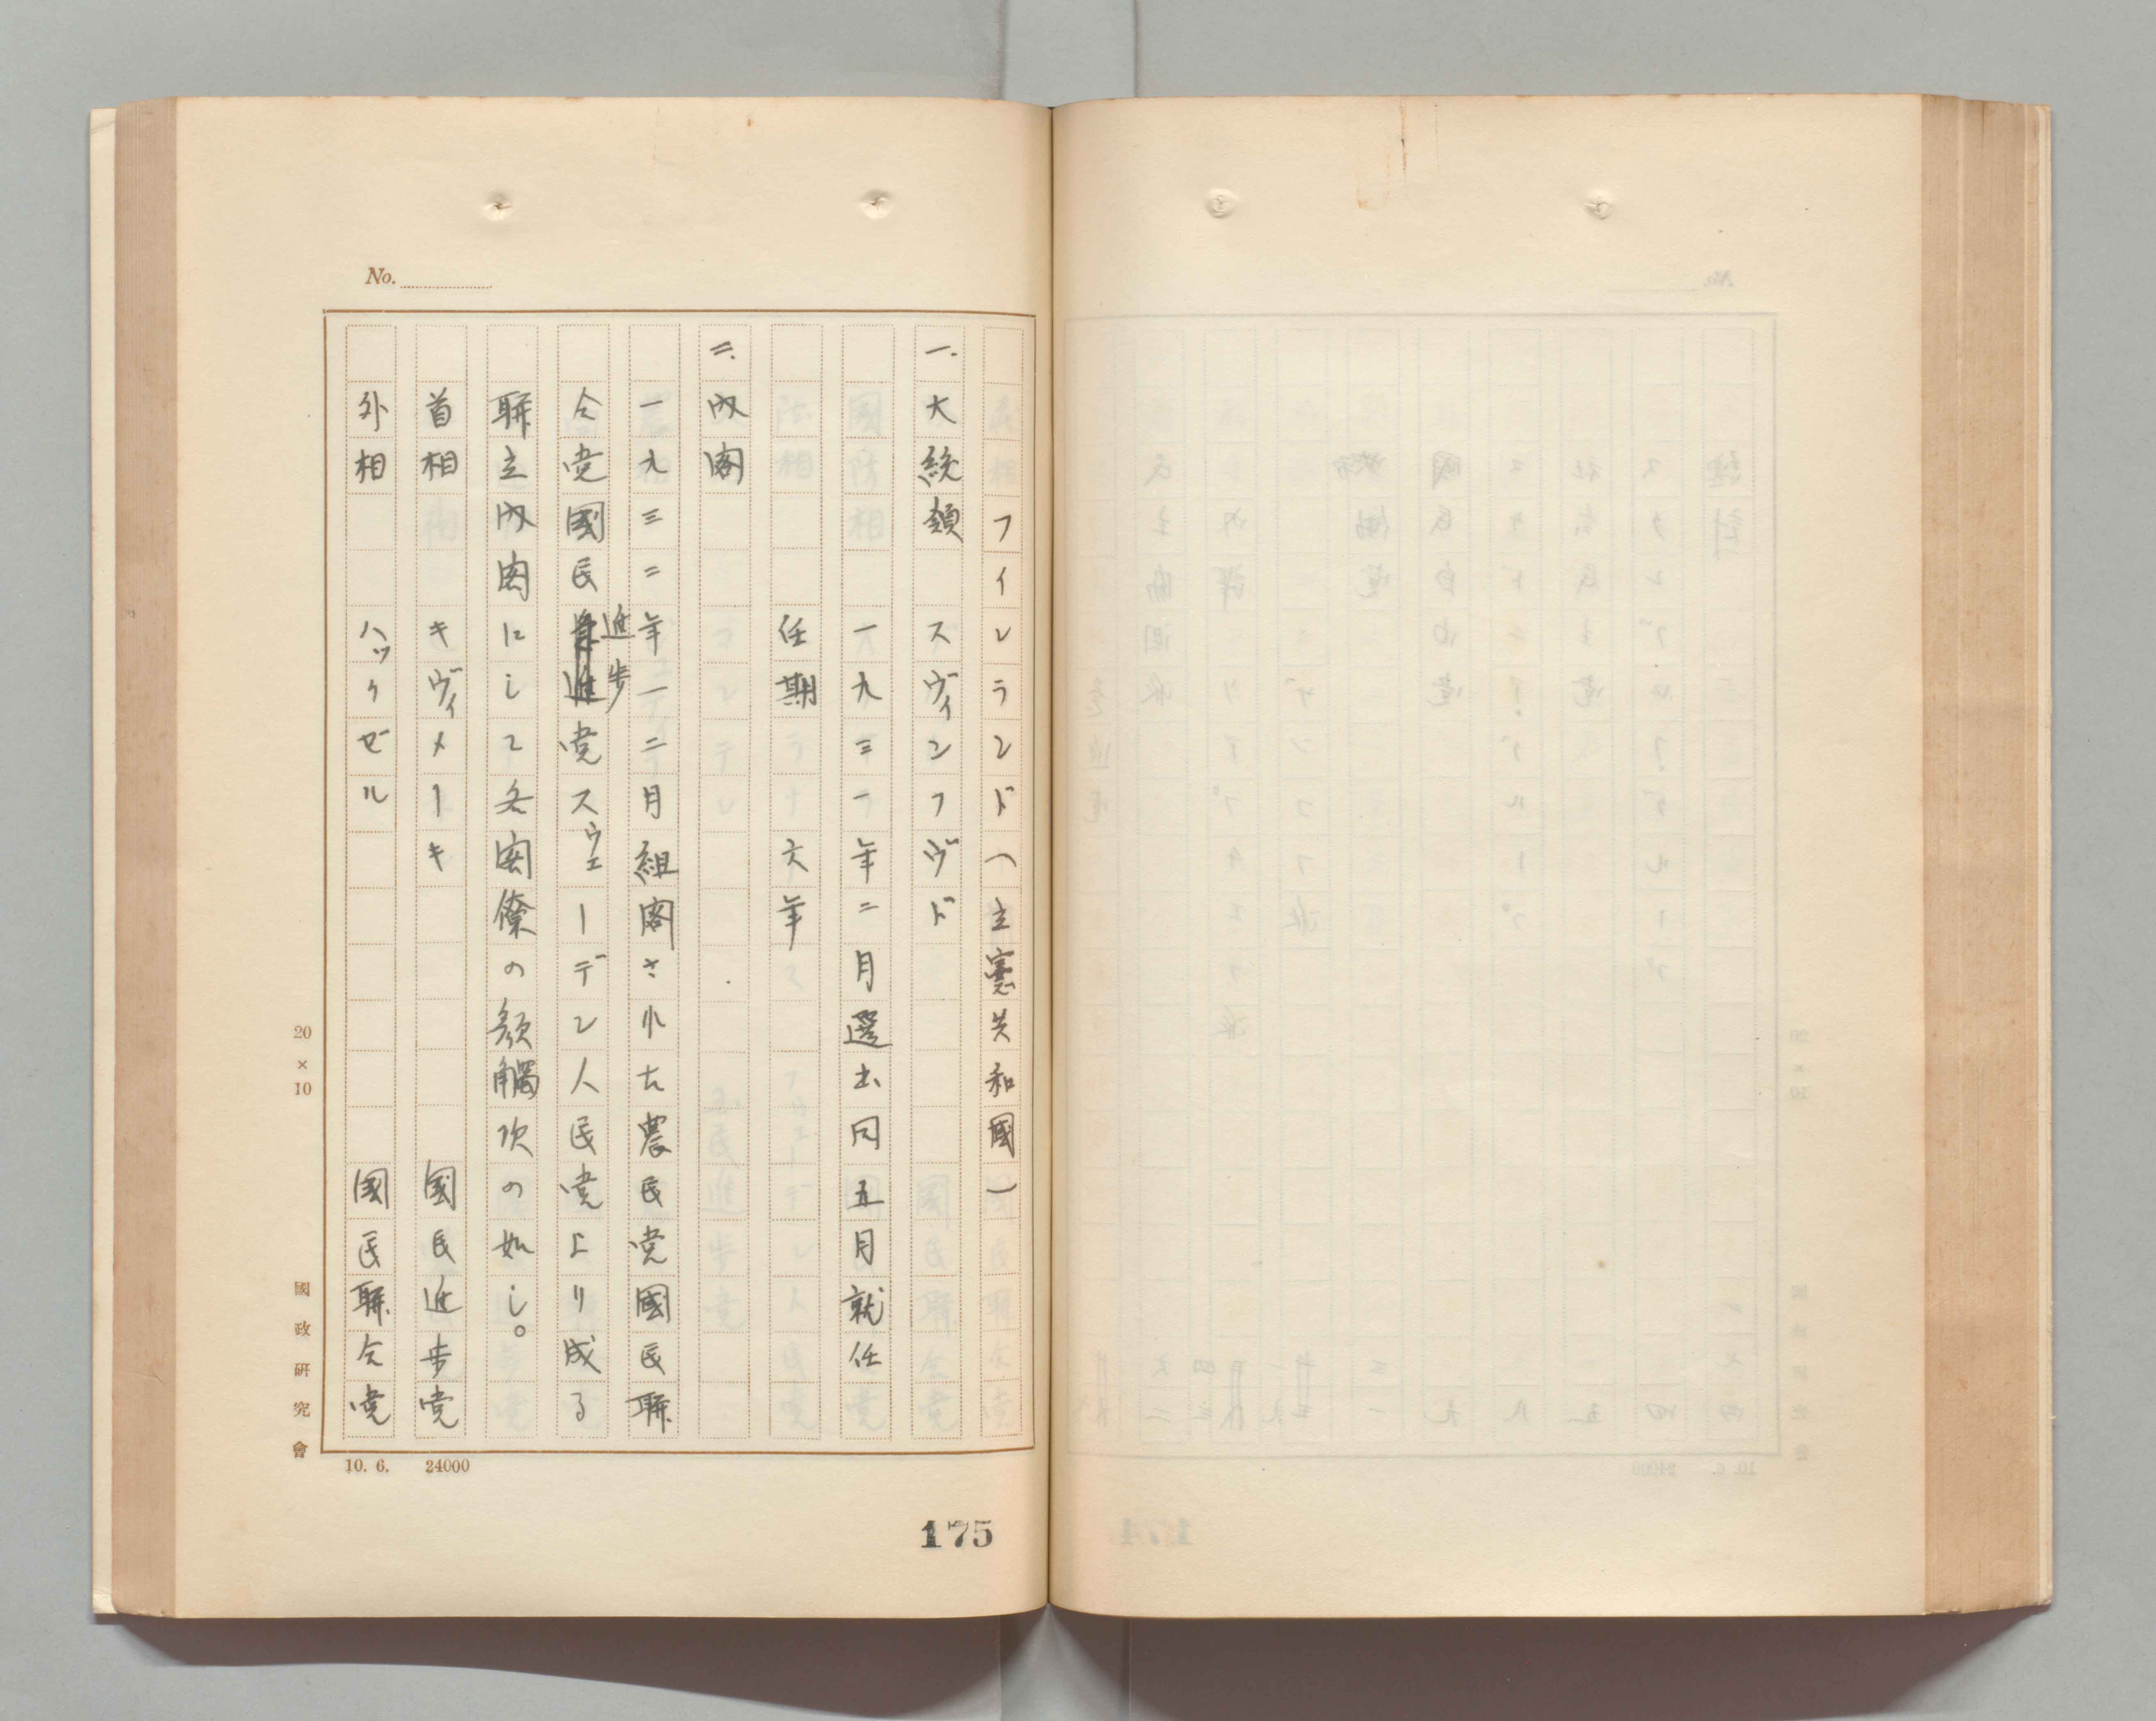 No.
フインランド(立憲共和國)
一.大統領 スヴィンフヴド
一九三一年二月選出同五月就任
任期 六年
二.内閣
一九三二年一二月組閣された農民党國民聯
合党國民進歩党スウェーデン人民党より成る
聯立内閣にして各閣僚の顔觸次の如し。
首相 キヴィメーキ 國民進歩党
外相 ハックゼル 國民聯合党
20×10
國政研究會
10. 6. 24000
175